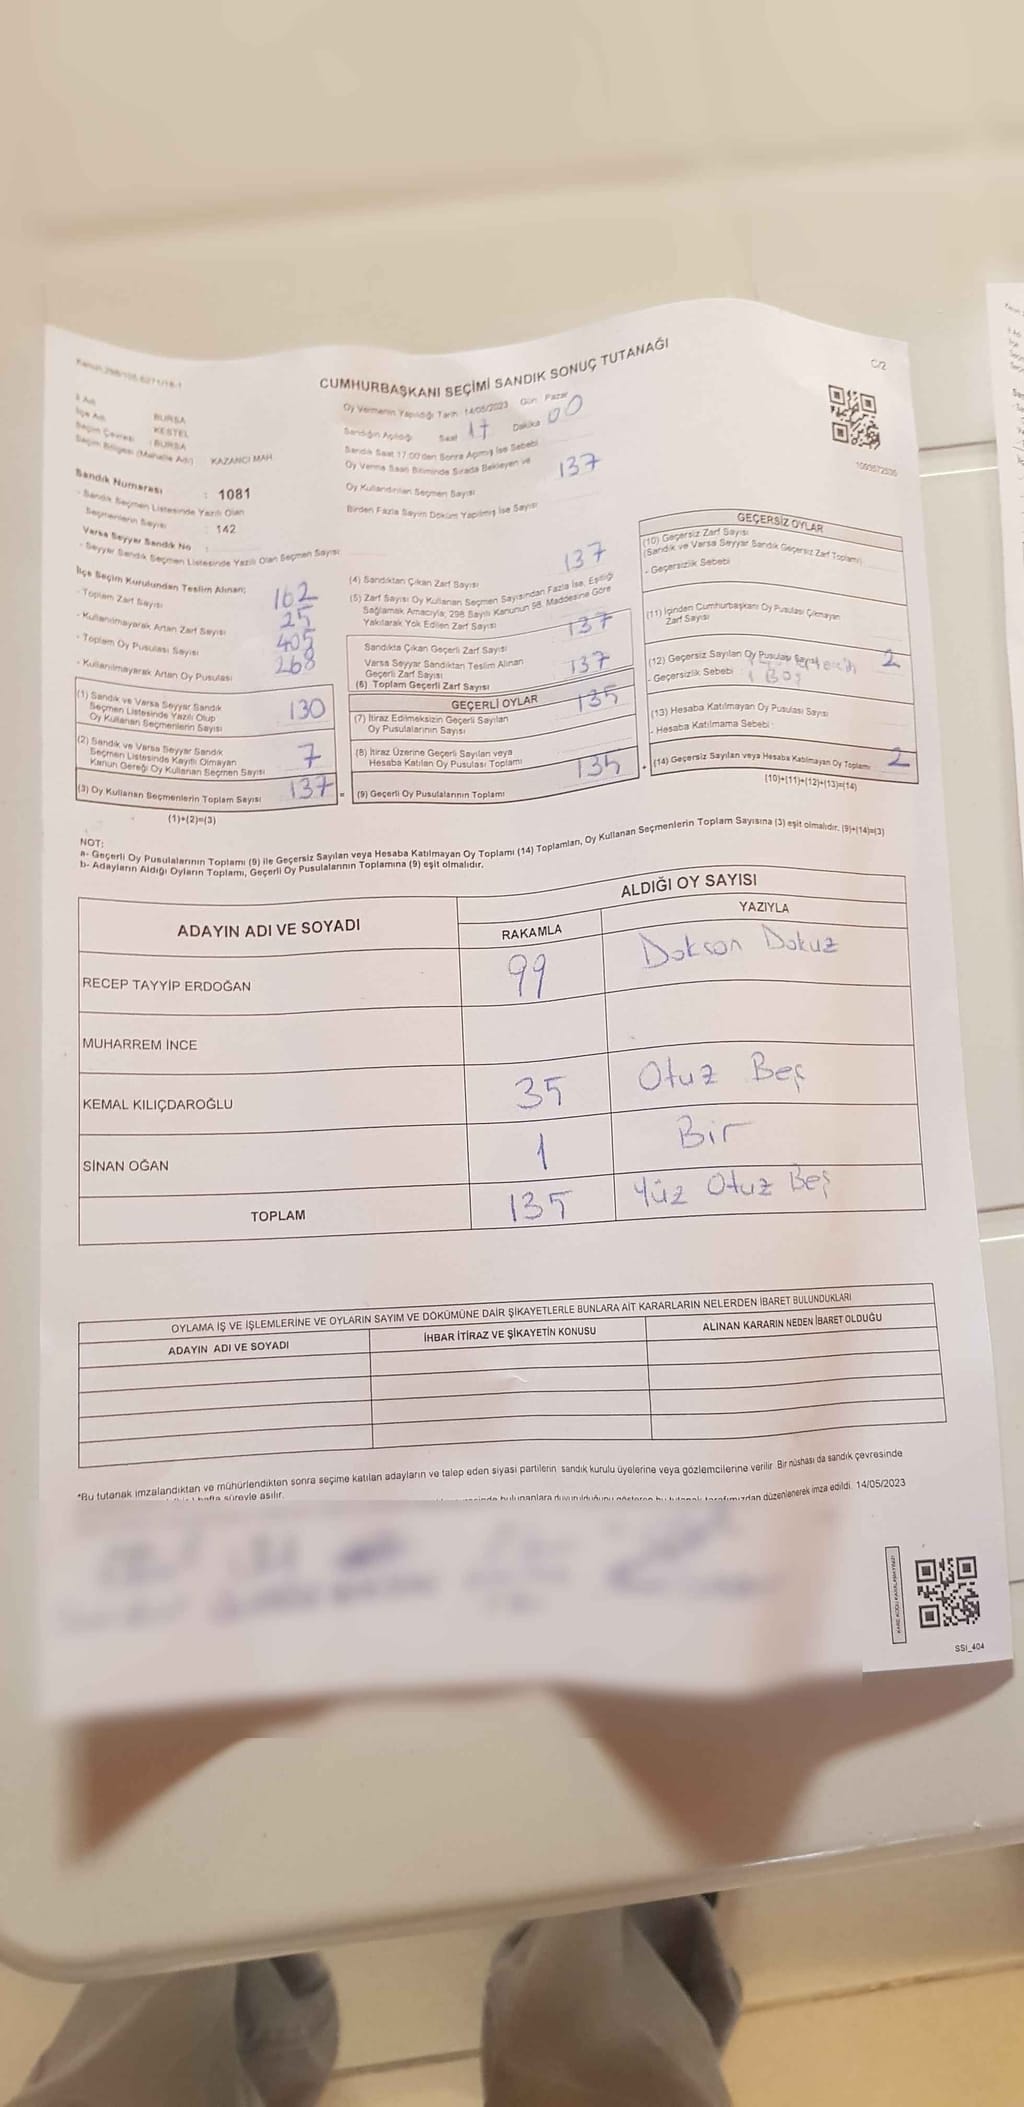 C/2
CUMHURBAŞKANI SEÇİMİ SANDIK SONUÇ TUTANAĞI
Oy Vermenin Yapıldığı Tarih 14/05/2023 Gün Pazar
Sandığın Açıldığı Saat 17 Dakika 00
Sandık Saat 17:00'den Sonra Açılmış İse Sebebi
Oy Verme Saati Bitiminde Sırada Bekleyen ve
Oy Kullandırılan Seçmen Sayısı 137
Birden Fazla Sayım Döküm Yapılmış İse Sayısı
İl Adı BURSA
İlçe Adı KESTEL
Seçim Çevresi : BURSA
Seçim Bölgesi (Mahalle Adı) KAZANCI MAH.
Sandık Numarası : 1081
- Sandık Seçmen Listesinde Yazılı Olan
Seçmenlerin Sayısı : 142
Varsa Seyyar Sandık No :
- Seyyar Sandık Seçmen Listesinde Yazılı Olan Seçmen Sayısı
İlçe Seçim Kurulundan Teslim Alınan;
- Toplam Zarf Sayısı 162
- Kullanılmayarak Artan Zarf Sayısı 25
- Toplam Oy Pusulası Sayısı 405
- Kullanılmayarak Artan Oy Pusulası 268
(1) Sandık ve Varsa Seyyar Sandık
Seçmen Listesinde Yazılı Olup
Oy Kullanan Seçmenlerin Sayısı 130
(2) Sandık ve Varsa Seyyar Sandık
Seçmen Listesinde Kayıtlı Olmayan
Kanun Gereği Oy Kullanan Seçmen Sayısı 7
(3) Oy Kullanan Seçmenlerin Toplam Sayısı 137 =
(1)+(2)=(3)
(4) Sandıktan Çıkan Zarf Sayısı 137
(5) Zarf Sayısı Oy Kullanan Seçmen Sayısından Fazla İse, Eşitliği
Sağlamak Amacıyla; 298 Sayılı Kanunun 98. Maddesine Göre
Yakılarak Yok Edilen Zarf Sayısı
Sandıkta Çıkan Geçerli Zarf Sayısı 137
Varsa Seyyar Sandıktan Teslim Alınan
Geçerli Zarf Sayısı
(6) Toplam Geçerli Zarf Sayısı 137
GEÇERLİ OYLAR
(7) İtiraz Edilmeksizin Geçerli Sayılan
Oy Pusulalarının Sayısı 135
(8) İtiraz Üzerine Geçerli Sayılan veya
Hesaba Katılan Oy Pusulası Toplamı
(9) Geçerli Oy Pusulalarının Toplamı 135 +
1003572535
GEÇERSİZ OYLAR
(10) Geçersiz Zarf Sayısı
(Sandık ve Varsa Seyyar Sandık Geçersiz Zarf Toplamı)
- Geçersizlik Sebebi
(11) İçinden Cumhurbaşkanı Oy Pusulası Çıkmayan
Zarf Sayısı
(12) Geçersiz Sayılan Oy Pusulası Sayısı 2
- Geçersizlik Sebebi 1 Boş
(13) Hesaba Katılmayan Oy Pusulası Sayısı
- Hesaba Katılmama Sebebi
(14) Geçersiz Sayılan veya Hesaba Katılmayan Oy Toplamı 2
(10)+(11)+(12)+(13)=(14)
NOT:
a- Geçerli Oy Pusulalarının Toplamı (9) ile Geçersiz Sayılan veya Hesaba Katılmayan Oy Toplamı (14) Toplamları, Oy Kullanan Seçmenlerin Toplam Sayısına (3) eşit olmalıdır. (9)+(14)=(3)
b- Adayların Aldığı Oyların Toplamı, Geçerli Oy Pusulalarının Toplamına (9) eşit olmalıdır.
ADAYIN ADI VE SOYADI
ALDIĞI OY SAYISI
RAKAMLA YAZIYLA
RECEP TAYYİP ERDOĞAN 99 Doksan Dokuz
MUHARREM İNCE
KEMAL KILIÇDAROĞLU 35 Otuz Beş
SİNAN OĞAN 1 Bir
TOPLAM 135 Yüz Otuz Beş
OYLAMA İŞ VE İŞLEMLERİNE VE OYLARIN SAYIM VE DÖKÜMÜNE DAİR ŞİKAYETLERLE BUNLARA AİT KARARLARIN NELERDEN İBARET BULUNDUKLARI
ADAYIN ADI VE SOYADI İHBAR İTİRAZ VE ŞİKAYETİN KONUSU ALINAN KARARIN NEDEN İBARET OLDUĞU
*Bu tutanak imzalandıktan ve mühürlendikten sonra seçime katılan adayların ve talep eden siyasi partilerin sandık kurulu üyelerine veya gözlemcilerine verilir. Bir nüshası da sandık çevresinde
hafta süreyle asılır.
düzenlenerek imza edildi. 14/05/2023
SSI_404